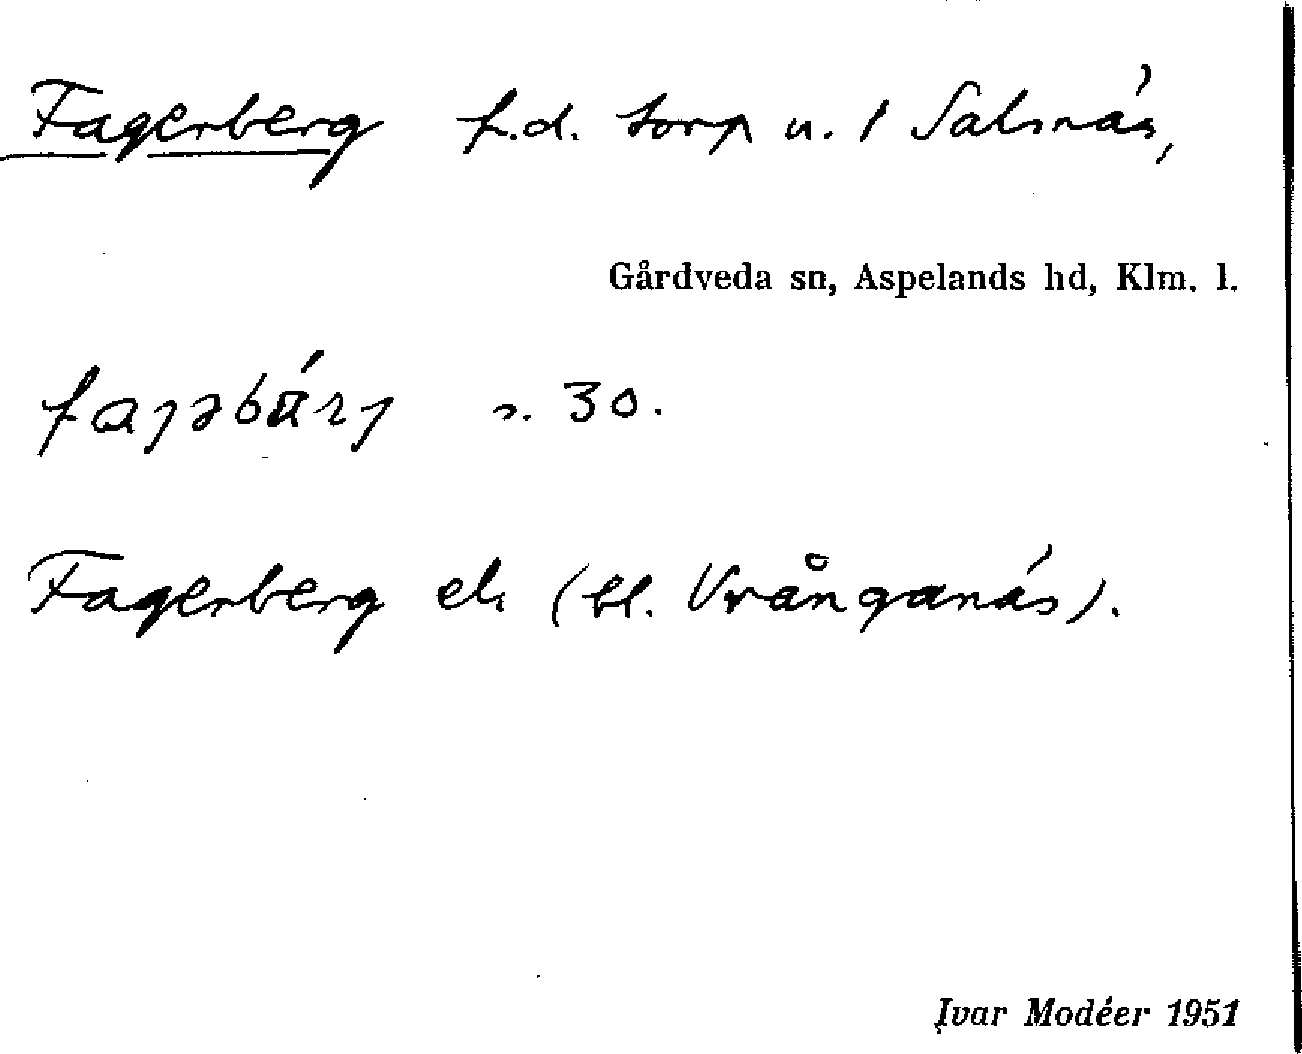 Fagerberg f.d. torp u. 1 Salsnäs,
Gårdveda sn, Aspelands hd, Klm. l.
s. 30.
Fagerberg ek (bl. Vrånganäs).
Ivar Modéer 1951